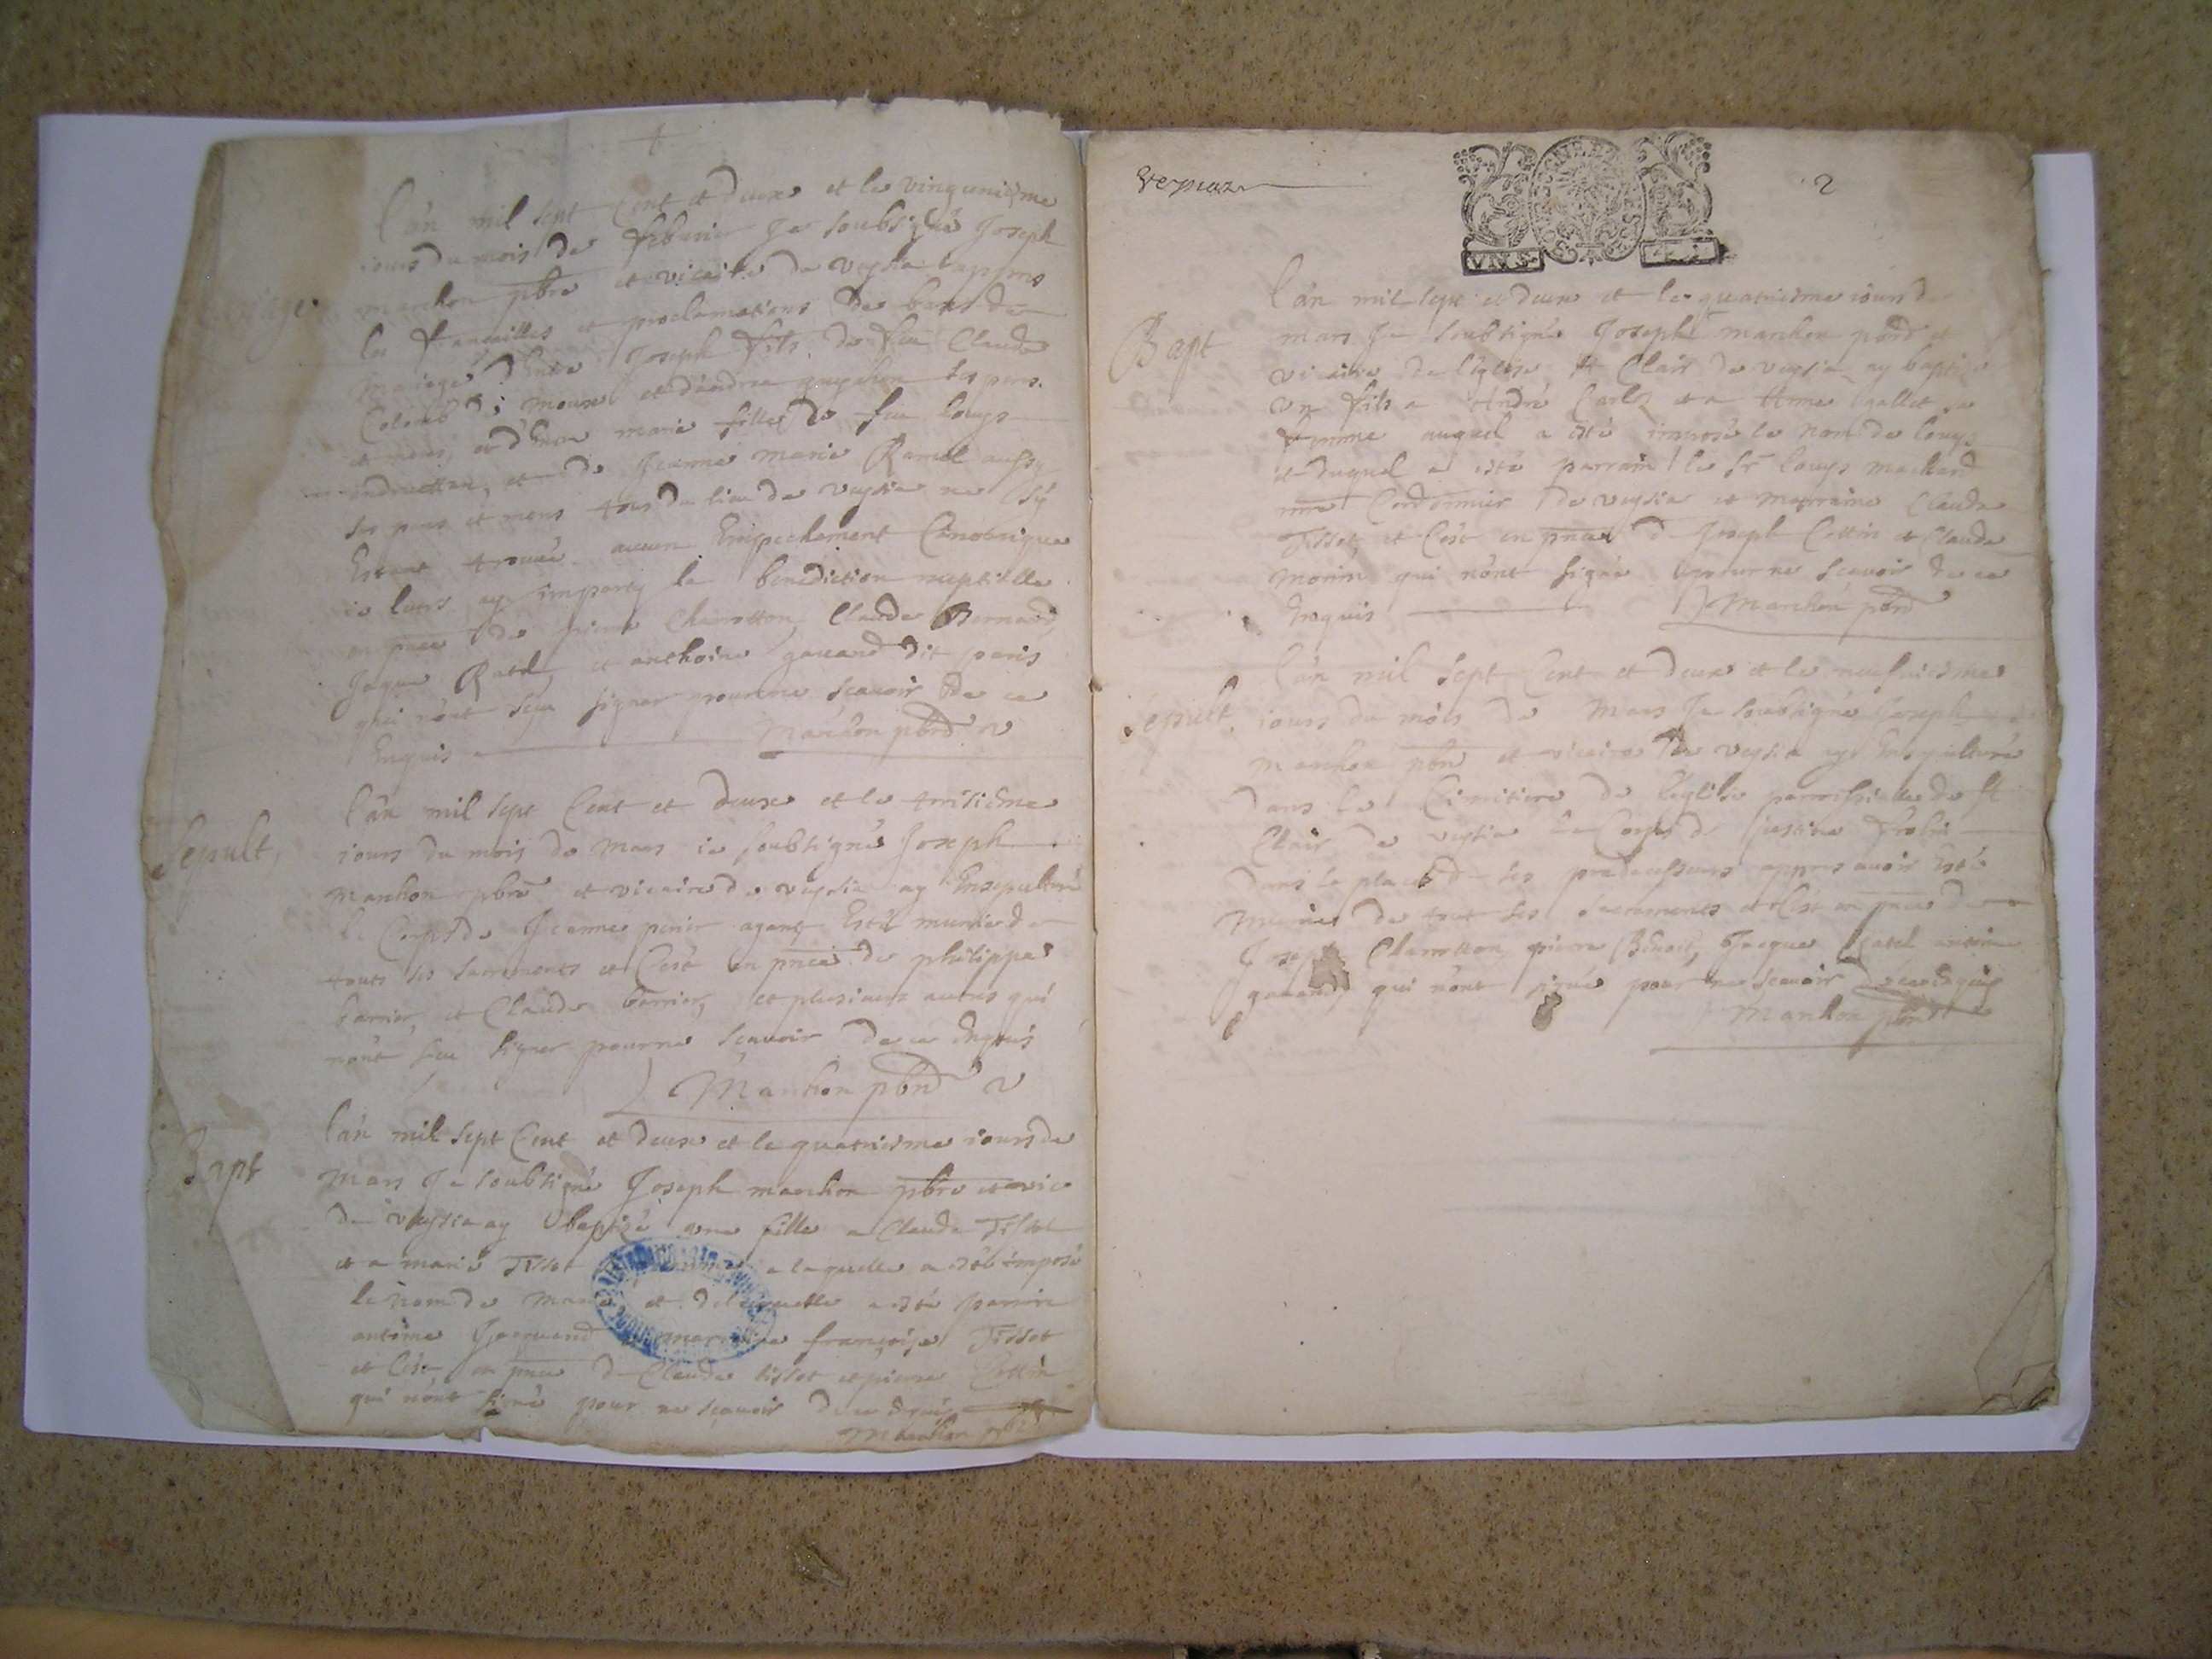 Mariage
L'an mil sept Cent et deux et le vingunieme
iours du mois de febvrier Je soubsigné Joseph
marchon pbre et vicaire de veysia appres
les fiancailles et proclamations de bans de
Mariage d'entre Joseph fils de feu Claude
Colomb et d'andrea ses pere
et mere, et d'entre marie fille de feu Louys
et de Jeanne marie Ramel aussy
ses pere et mere tous du lieu de veysia ne s'y
Estant trouvé aucun Empechement Canonique
ie leurs ay imparty la benediction nuptialle
en pnce de pierre Charrotton, Claude Bernard,
Jaque Ratel, et anthoine gauand dit paris
qui n'ont sceu signer pour ne scavoir de ce
Enquis Marchon pbre
Sepult,
L'an mil sept Cent et deux et le troisieme
iours du mois de Mars ie soubsigné Joseph
Marchon pbre et vicaire de veysia ay Ensepulturé
le Corps de Jeanne perier ayant Esté munie de
touts ses sacrements et C'est en pnce de philippe
barrier, et Claude barrier, et plusieurs autres qui
n'ont sceu signer pour ne scavoir de ce Enquis
Marchon pbre
Bapt
L'an mil sept Cent et deux et le quatriesme iours de
Mars Je soubsigné Joseph marchon pbre et vic
de veysia ay baptizé une fille a Claude Tissot
et a marie Tissot a laquelle a esté imposé
le nom de Marie et de laquelle a esté parrin
antoine Jacquand marraine françoise Tissot
et C'est en pnce de Claude tissot et pierre Cottin
qui n'ont signé pour ne scavoir de ce Enquis
Marchon pbre
2
Bapt
L'an mil sept et deux et le quatriesme iours de
mars Je soubsigné Joseph marchon pbre et
vicaire de l'eglise St Clair de veysia ay baptizé
un fils a André Carlz et a Anne gallet sa
femme auquel a esté imposé le nom de Louys
et duquel a esté parrain le Sr Louys machard
mre Cordonnier de veysia et marraine Claude
Tissot, et C'est en pnce de Joseph Cottin et Claude
Morin qui n'ont signé pour ne scavoir de ce
Enquis Marchon pbre
Sepult,
L'an mil sept Cent et deux et le neufviesme
iours du mois de Mars Je soubsigné Joseph
Marchon pbre et vicaire de veysia ay Ensepulturé
dans le Cimitiere de l'eglise parroissialle de St
Clair de veysia le Corps de
dans la place de ses predecesseurs appres avoir Esté
Munie de tout ses sacrements et C'est en pnce de
Joseph Charrotton pierre Benoit, Jacque Ratel antoine
gauand, qui n'ont signé pour ne scavoir de ce Enquis
Marchon pbre